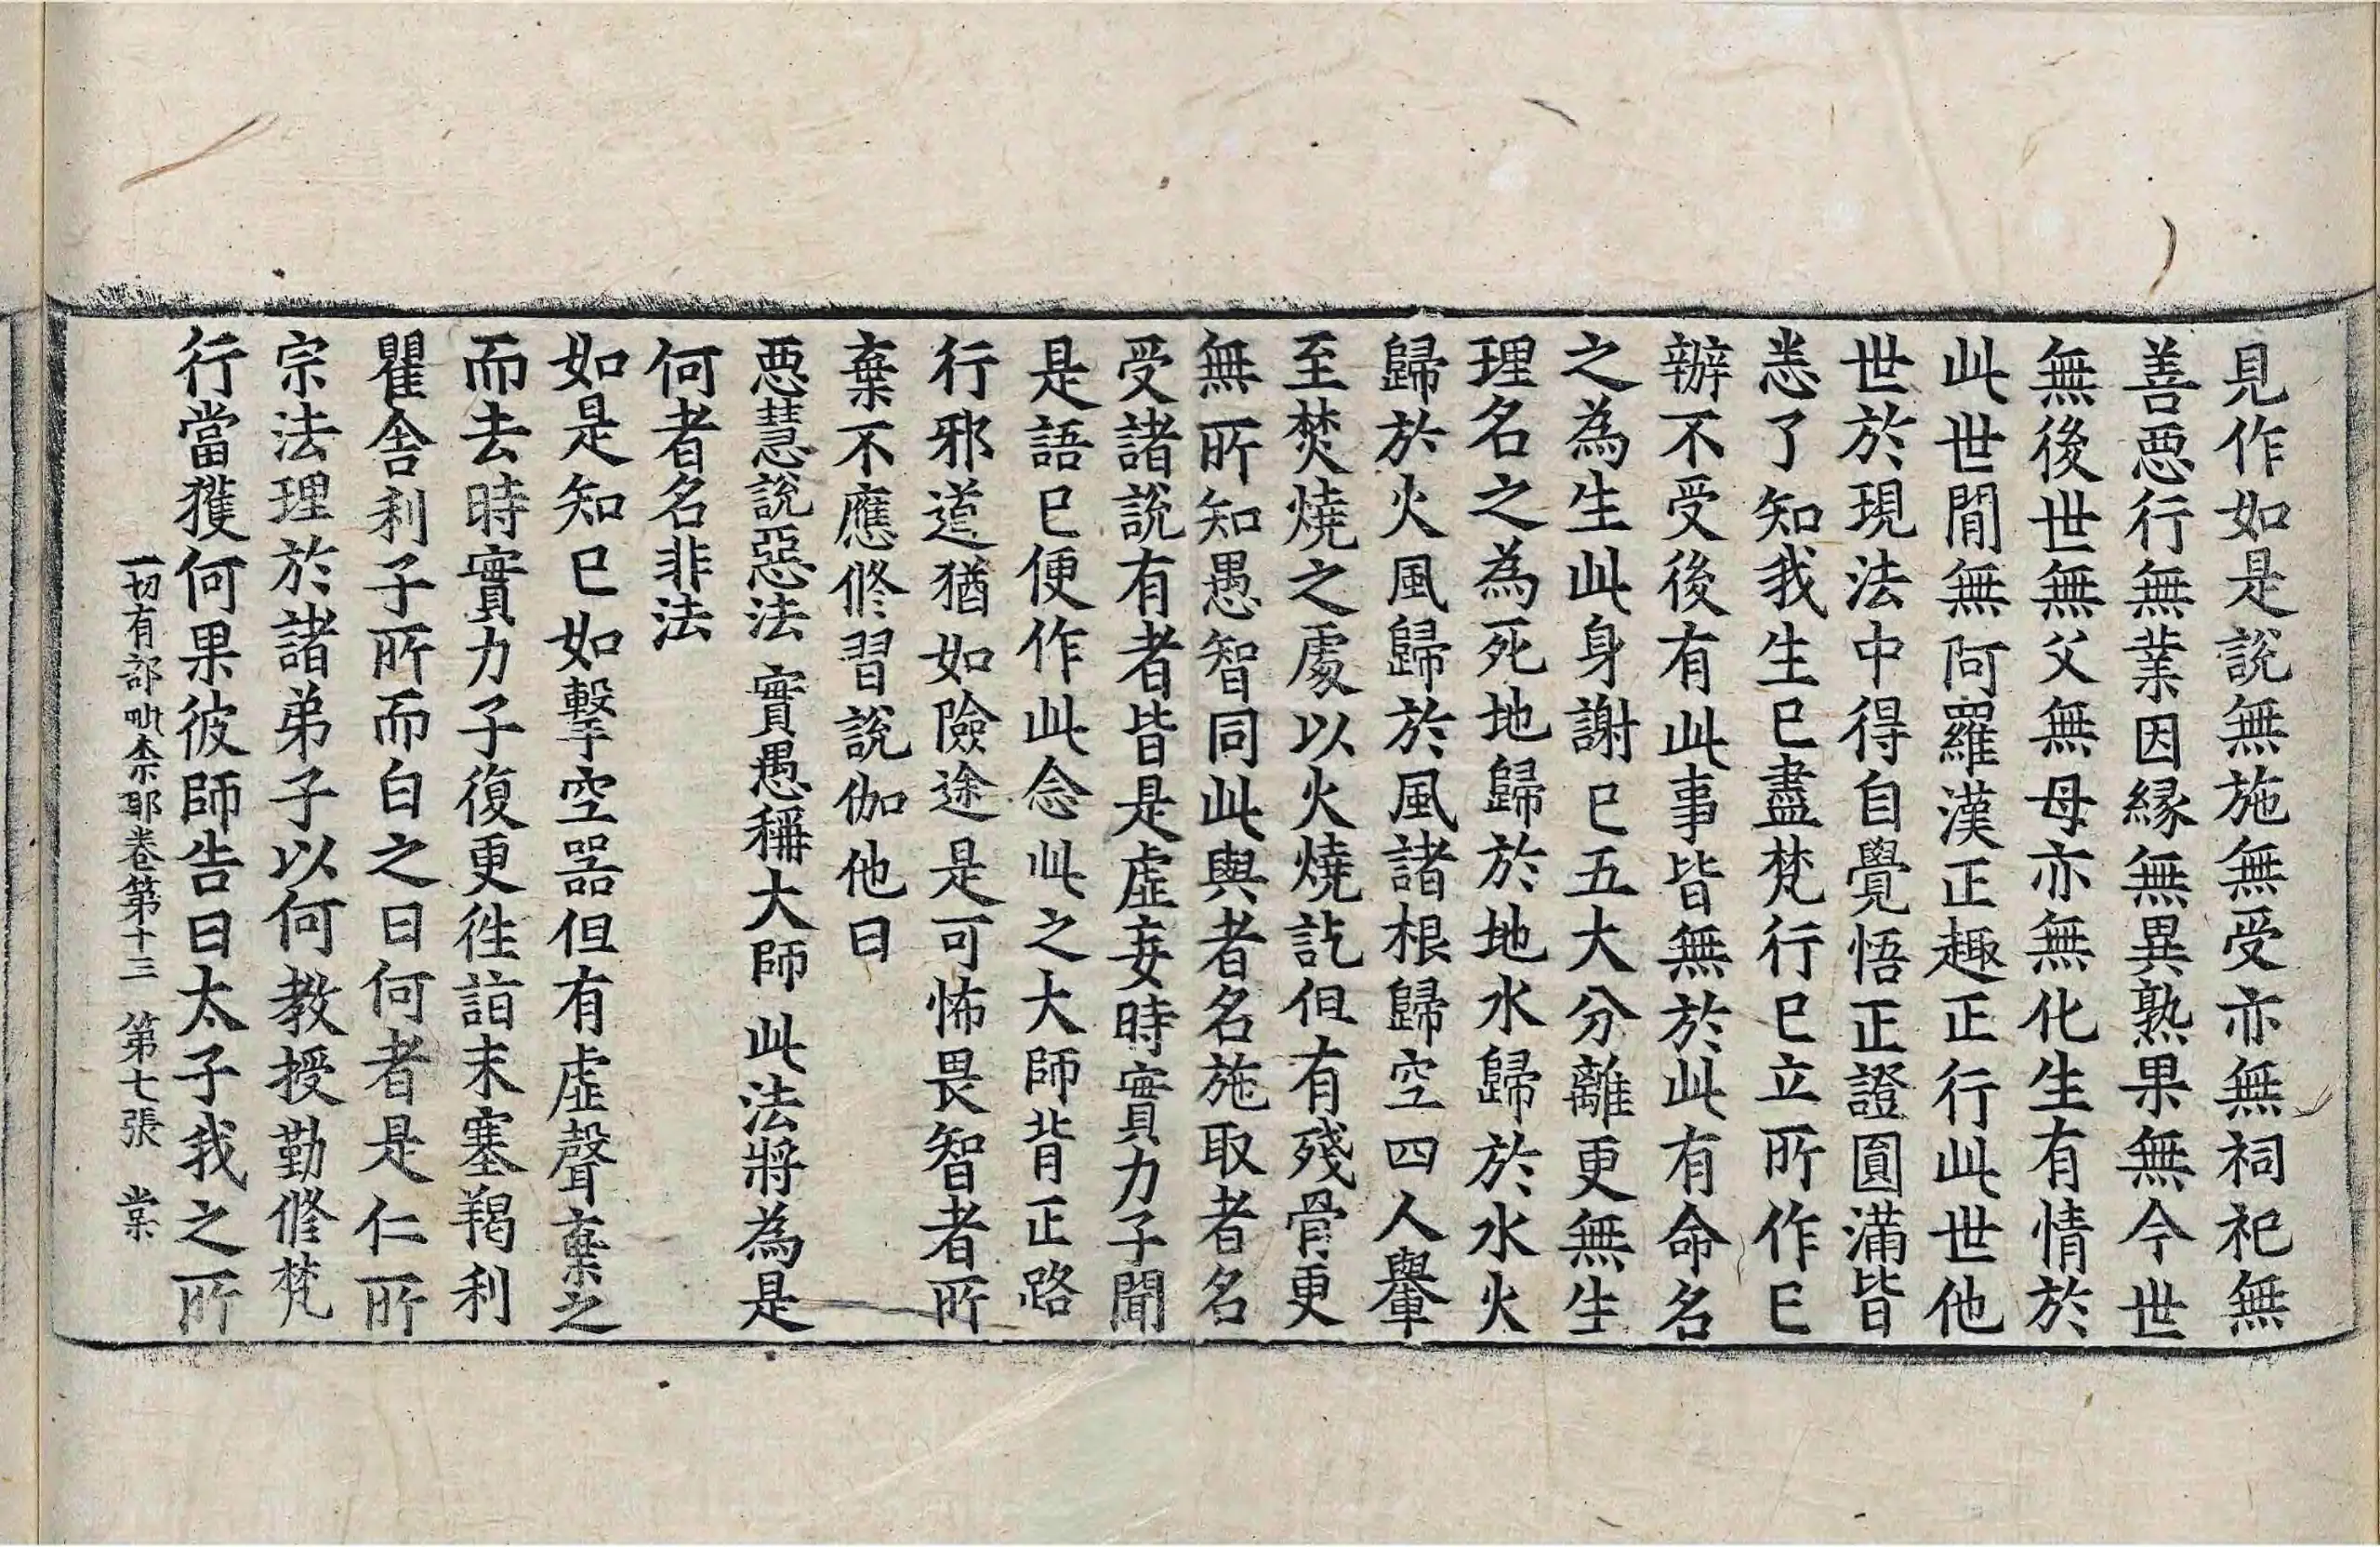 見作如是說無施無受亦無祠祀無
善惡行無業因緣無異熟果無今世
無後世無父無母亦無化生有情於
此世間無阿羅漢正趣正行此世他
世於現法中得自覺悟正證圓滿皆
悉了知我生已盡梵行已立所作已
辦不受後有此事皆無於此有命名
之為生此身謝已五大分離更無生
理名之為死地歸於地水歸於水火
歸於火風歸於風諸根歸空四人轝
至焚燒之處以火燒訖但有殘骨更
無所知愚智同此與者名施取者名
受諸說有者皆是虛妄時實力子聞
是語已便作此念此之大師背正路
行邪道猶如險途是可怖畏智者所
棄不應修習說伽他曰
惡慧說惡法 實愚稱大師 此法將為是
何者名非法
如是知已如擊空器但有虛聲棄之
而去時實力子復更往詣末塞羯利
瞿舍利子所而白之曰何者是仁所
宗法理於諸弟子以何教授勤修梵
行當獲何果彼師告曰太子我之所
一切有部毗奈耶卷第十三 第七張 棠